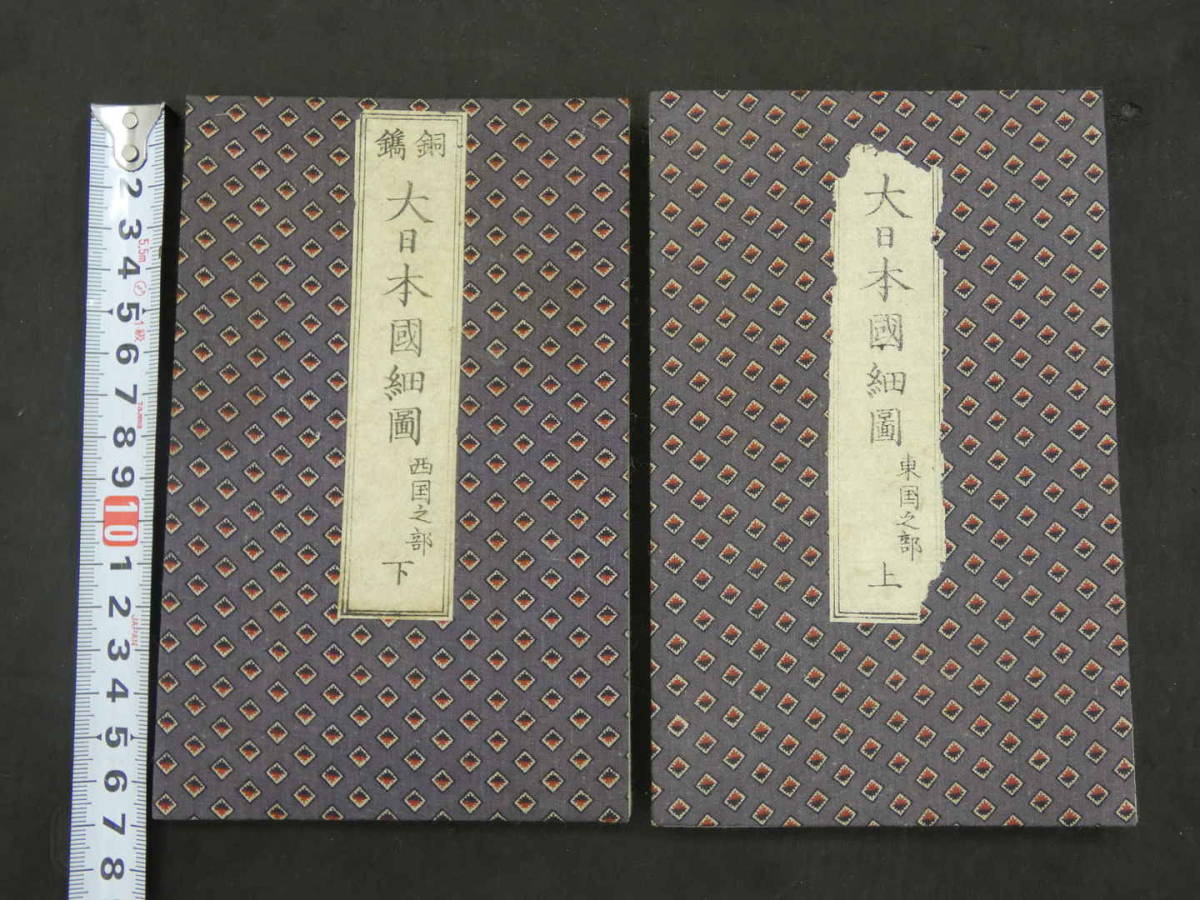 銅鐫
大日本國細圖
西国之部
下
大日本國細圖
東国之部
上
2
3
5.5m
4
5
1級
6
7
8
9
10
1
2
JAPAN
3
4
5
6
7
8